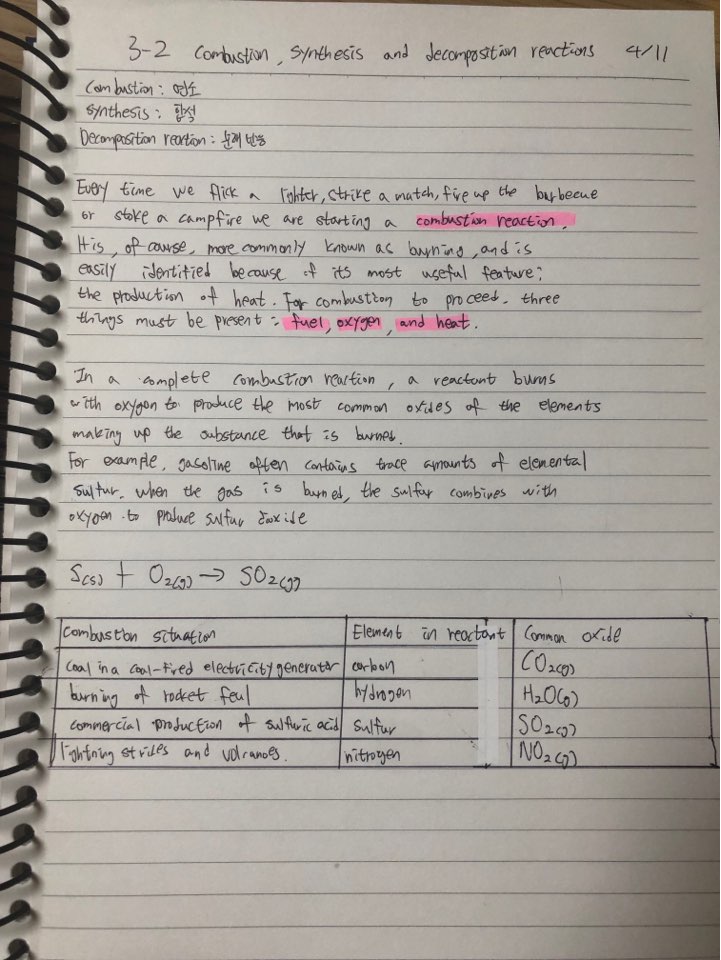 3-2 Combustion, synthesis and decomposition reactions 4/11
Combustion : 연소
synthesis : 합성
Decomposition reaction : 분해 반응
Every time we flick a lighter, strike a match, fire up the barbecue
or stoke a campfire we are starting a combustion reaction.
His, of course, more commonly known as burning, and is
easily identified because of its most useful feature;
the production of heat. For combustion to proceed. three
things must be present : fuel, oxygen, and heat.
In a complete combustion reaction, a reactant burns
with oxygen to produce the most common oxides of the elements
making up the substance that is burned.
For example, gasoline often contains trace amounts of elemental
sulfur. when the gas is burned, the sulfur combines with
oxygen to produce sulfur dioxide
S(s) + O2(g) → SO2(g)
Combustion situation Element in reactant Common oxide
coal in a coal-fired electricity generator carbon CO2(g)
burning of rocket feul hydrogen H2O(g)
commercial production of sulfuric acid sulfur SO2(g)
lightning strides and volcanoes. nitrogen NO2(g)